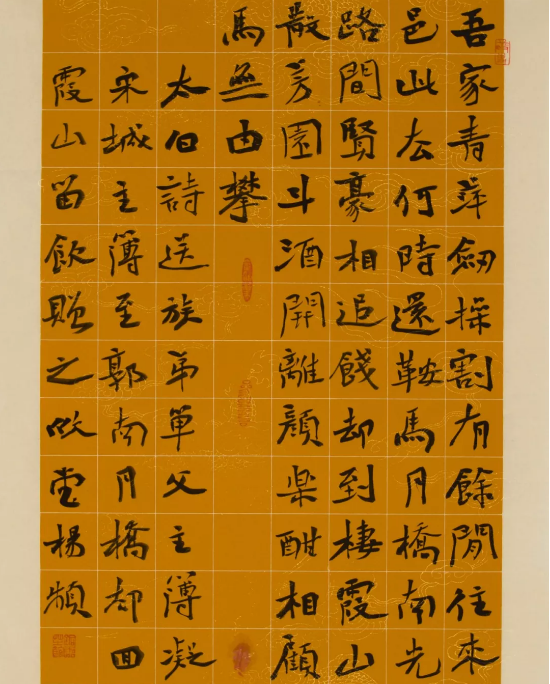 吾家青萍劍操割有餘閒往來
邑此去何時還鞍馬月橋南光
路間賢豪相追餞却到棲霞山
散芳園斗酒開離顏樂酣相顧
馬無由攀
太白詩送族弟單父主簿凝
宋城主簿至郭南月橋却回
霞山留飲贈之堂楊